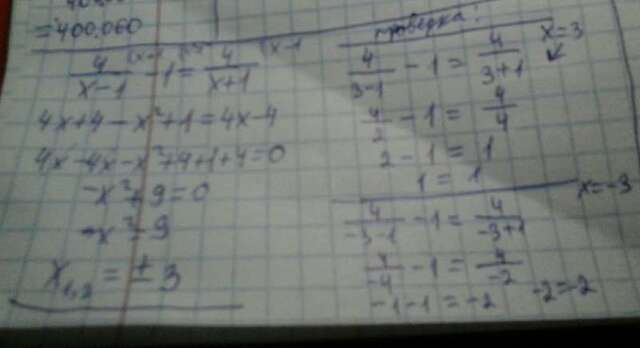 =400,060
4/(x-1) - 1 = 4/(x+1)
4x+4-x²+1=4x-4
4x-4x-x²+4+1+4=0
-x²+9=0
-x²=9
x₁,₂ = ±3
проверка:
x=3
4/(3-1) - 1 = 4/(3+1)
4/2 - 1 = 4/4
2 - 1 = 1
1 = 1
x=-3
4/(-3-1) - 1 = 4/(-3+1)
4/-4 - 1 = 4/-2
-1-1 = -2
-2=-2